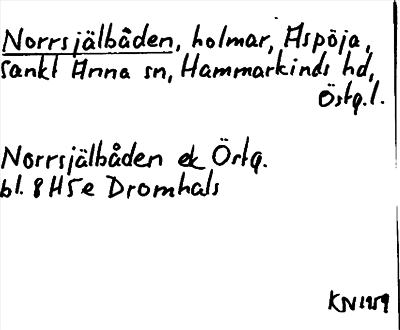 Norrsjälbåden, holmar, Aspöja,
Sankt Anna sn, Hammarkinds hd,
Östg.l.
Norrsjälbåden ek Östg.
bl. 8H5e Dromhals
KN1959